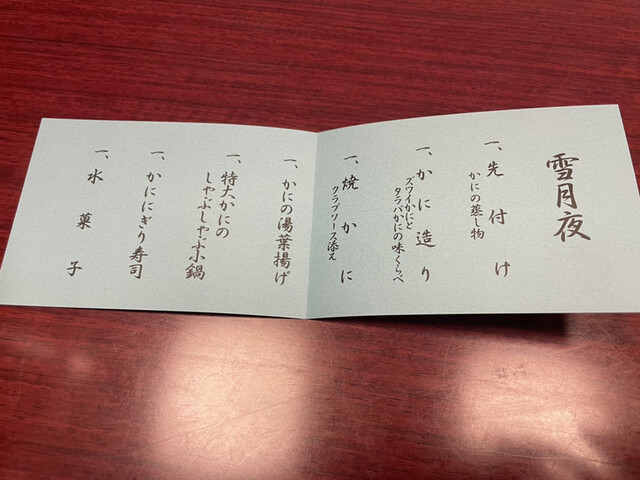 雪月夜
一、先付け
かにの蒸し物
一、かに造り
ズワイかにと
タラバかにの味くらべ
一、焼かに
クラブソース添え
一、かにの湯葉揚げ
一、特大かにの
しゃぶしゃぶ小鍋
一、かににぎり寿司
一、水菓子